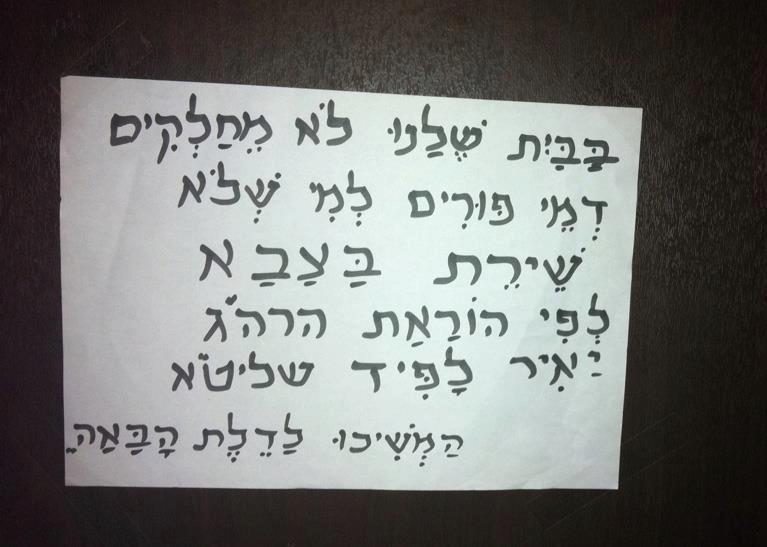 בַּבַּיִת שֶׁלָנוּ לֹא מְחַלְקִים
דְמֵי פּוּרִים לְמִי שֶׁלֹא
שֵׁירֵת בַּצָבָא
לְפִי הוֹרָאַת הרה"ג
יָאִיר לַפִּיד שליט"א
הַמְשִׁיכוּ לַדֶלֶת הַבָּאָה